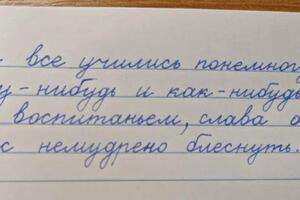 все учились понемног
у-нибудь и как-нибудь
воспитаньем, слава
с немудрено блеснуть.